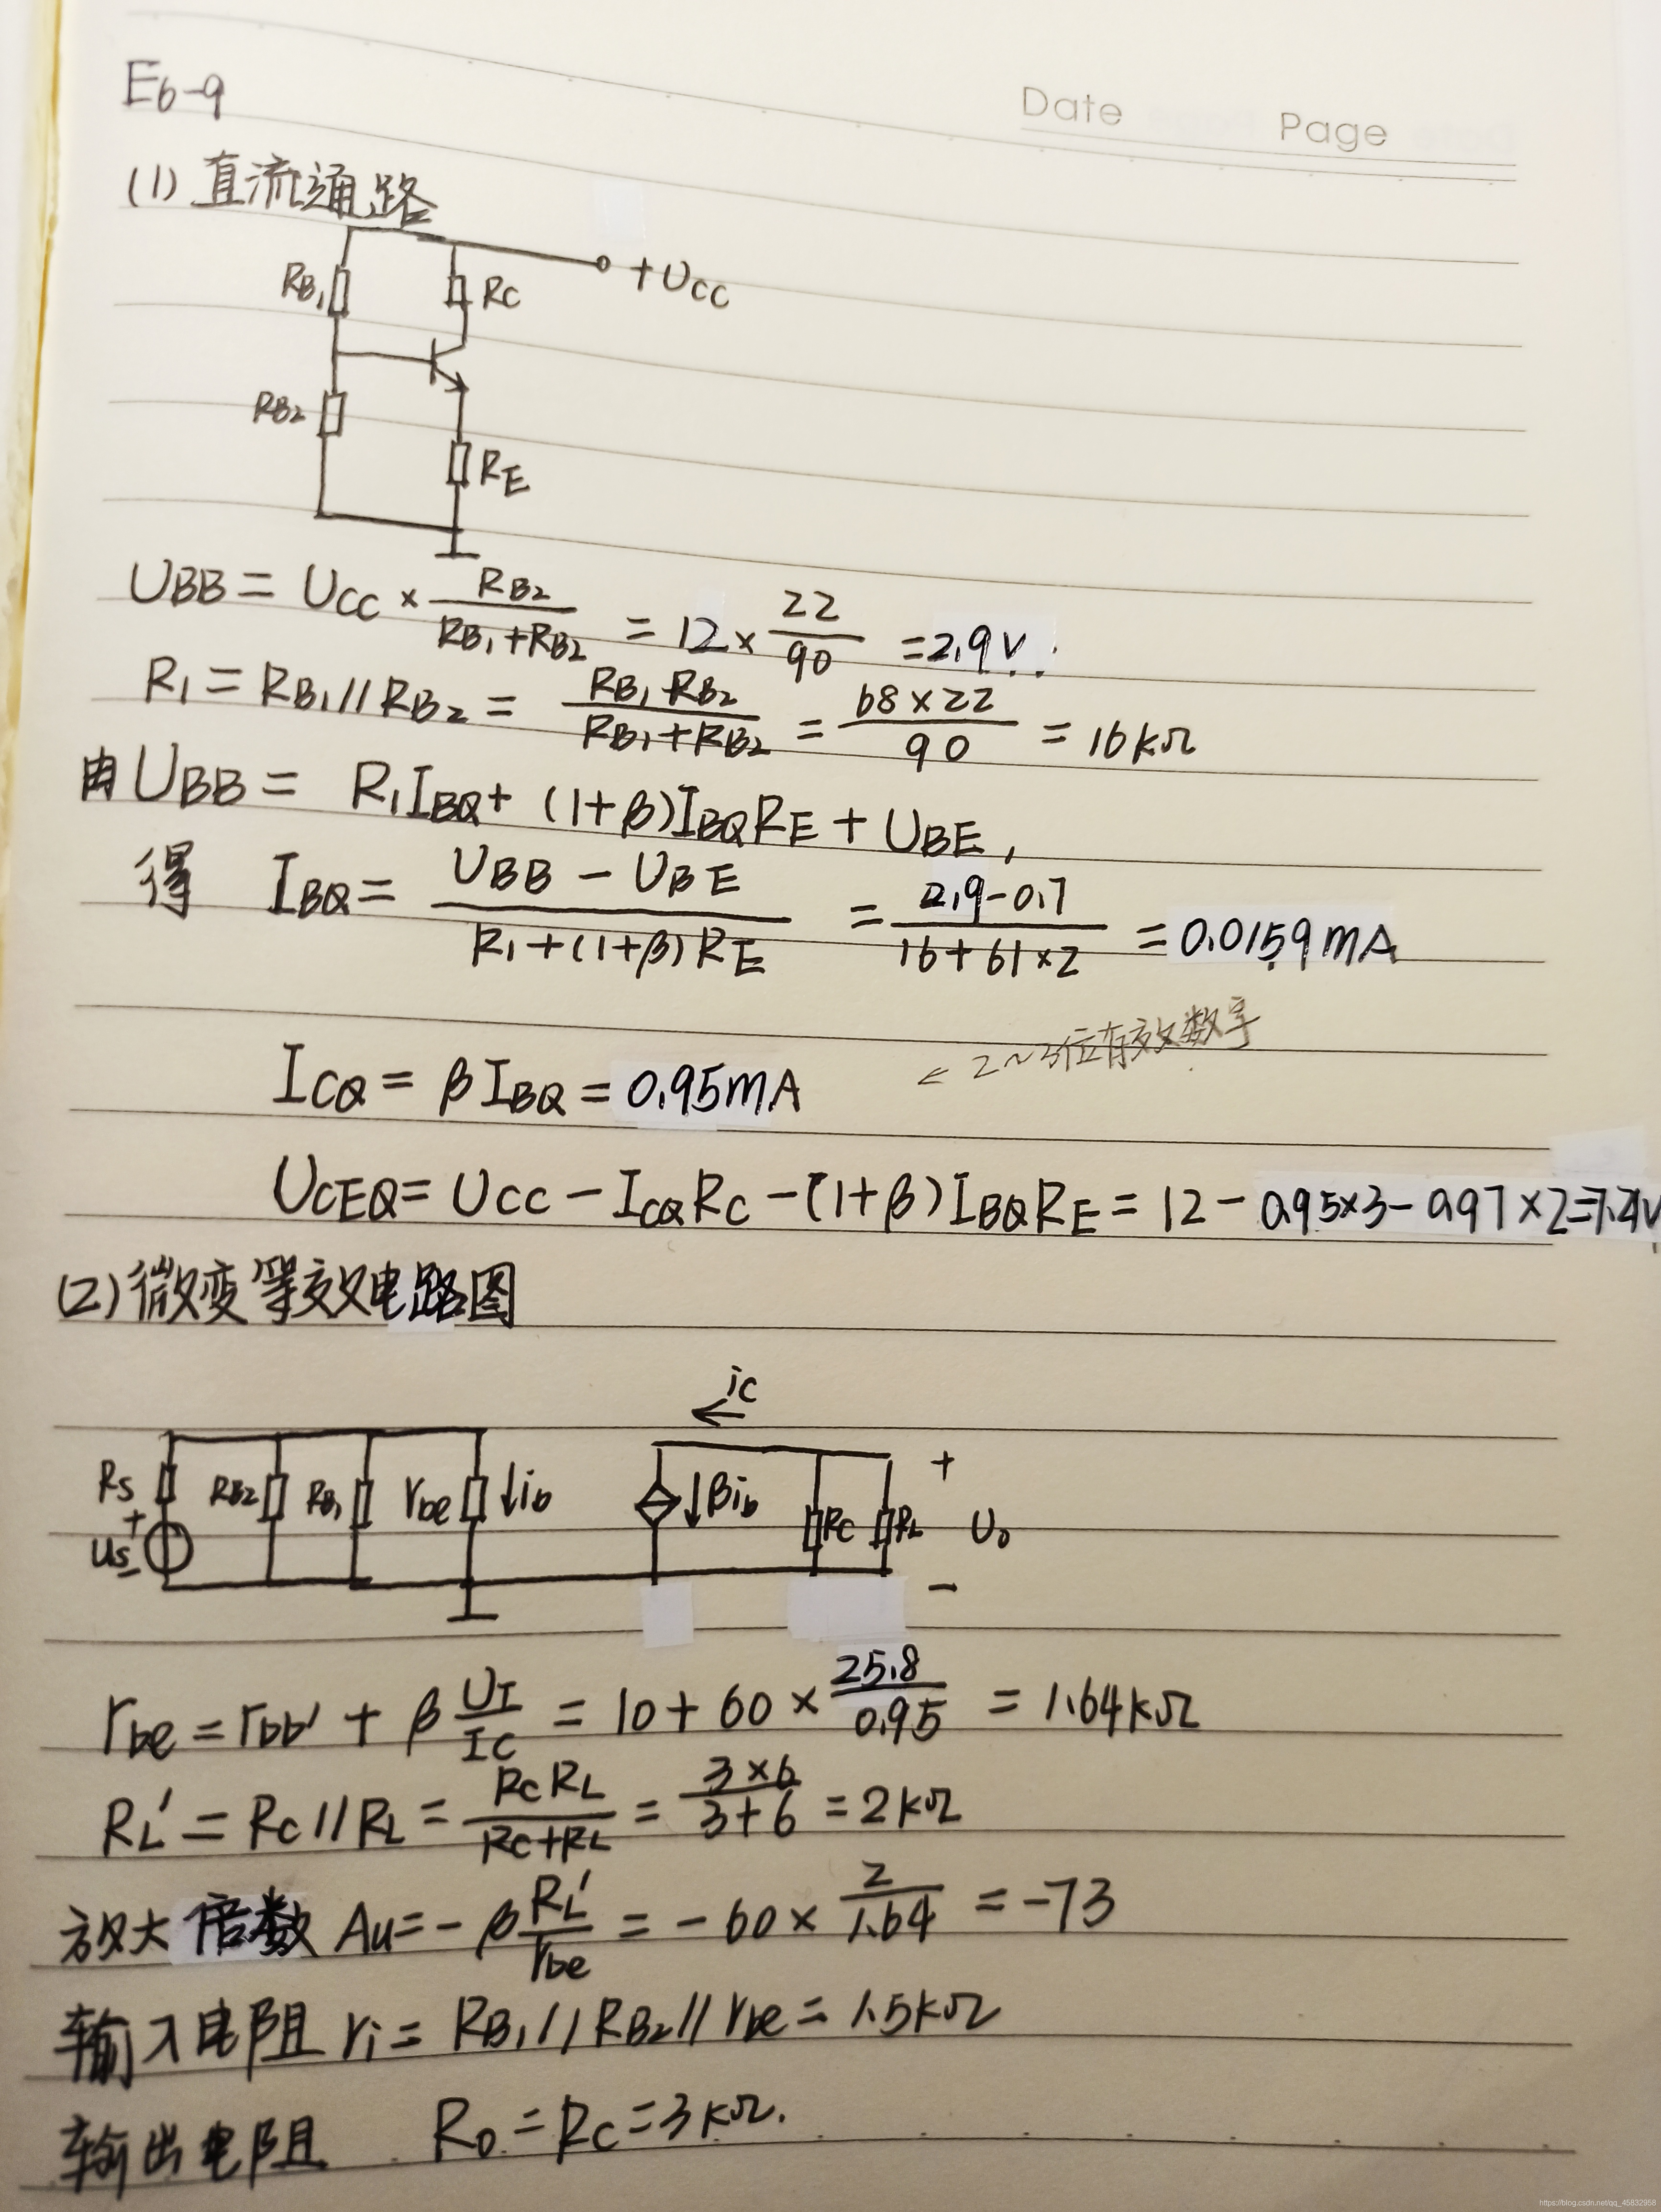 Date Page
E6-9
(1) 直流通路
+UCC
RB1 RC
RB2
RE
UBB = UCC × RB2/(RB1+RB2) = 12 × 22/90 = 2.9V.
R1 = RB1//RB2 = RB1·RB2/(RB1+RB2) = 68×22/90 = 16kΩ
由UBB = R1IBQ + (1+β)IBQRE + UBE,
得 IBQ = (UBB - UBE)/(R1+(1+β)RE) = (2.9-0.7)/(16+61×2) = 0.0159mA
← 2~3位有效数字
ICQ = βIBQ = 0.95mA
UCEQ = UCC - ICQRC - (1+β)IBQRE = 12 - 0.95×3 - 0.97×2=7.2V
(2) 微变等效电路图
ic
Rs RB2 RB1 rbe ↓ib ↓βib RC RL + U0 -
+ us -
rbe = rbb' + β UT/IC = 10 + 60 × 25.8/0.95 = 1.64kΩ
RL' = RC//RL = RCRL/(RC+RL) = 3×6/(3+6) = 2kΩ
放大倍数 Au = -β RL'/rbe = -60 × 2/1.64 = -73
输入电阻 ri = RB1//RB2//rbe = 1.5kΩ
输出电阻 Ro = RC = 3kΩ.
https://blog.csdn.net/qq_45832958